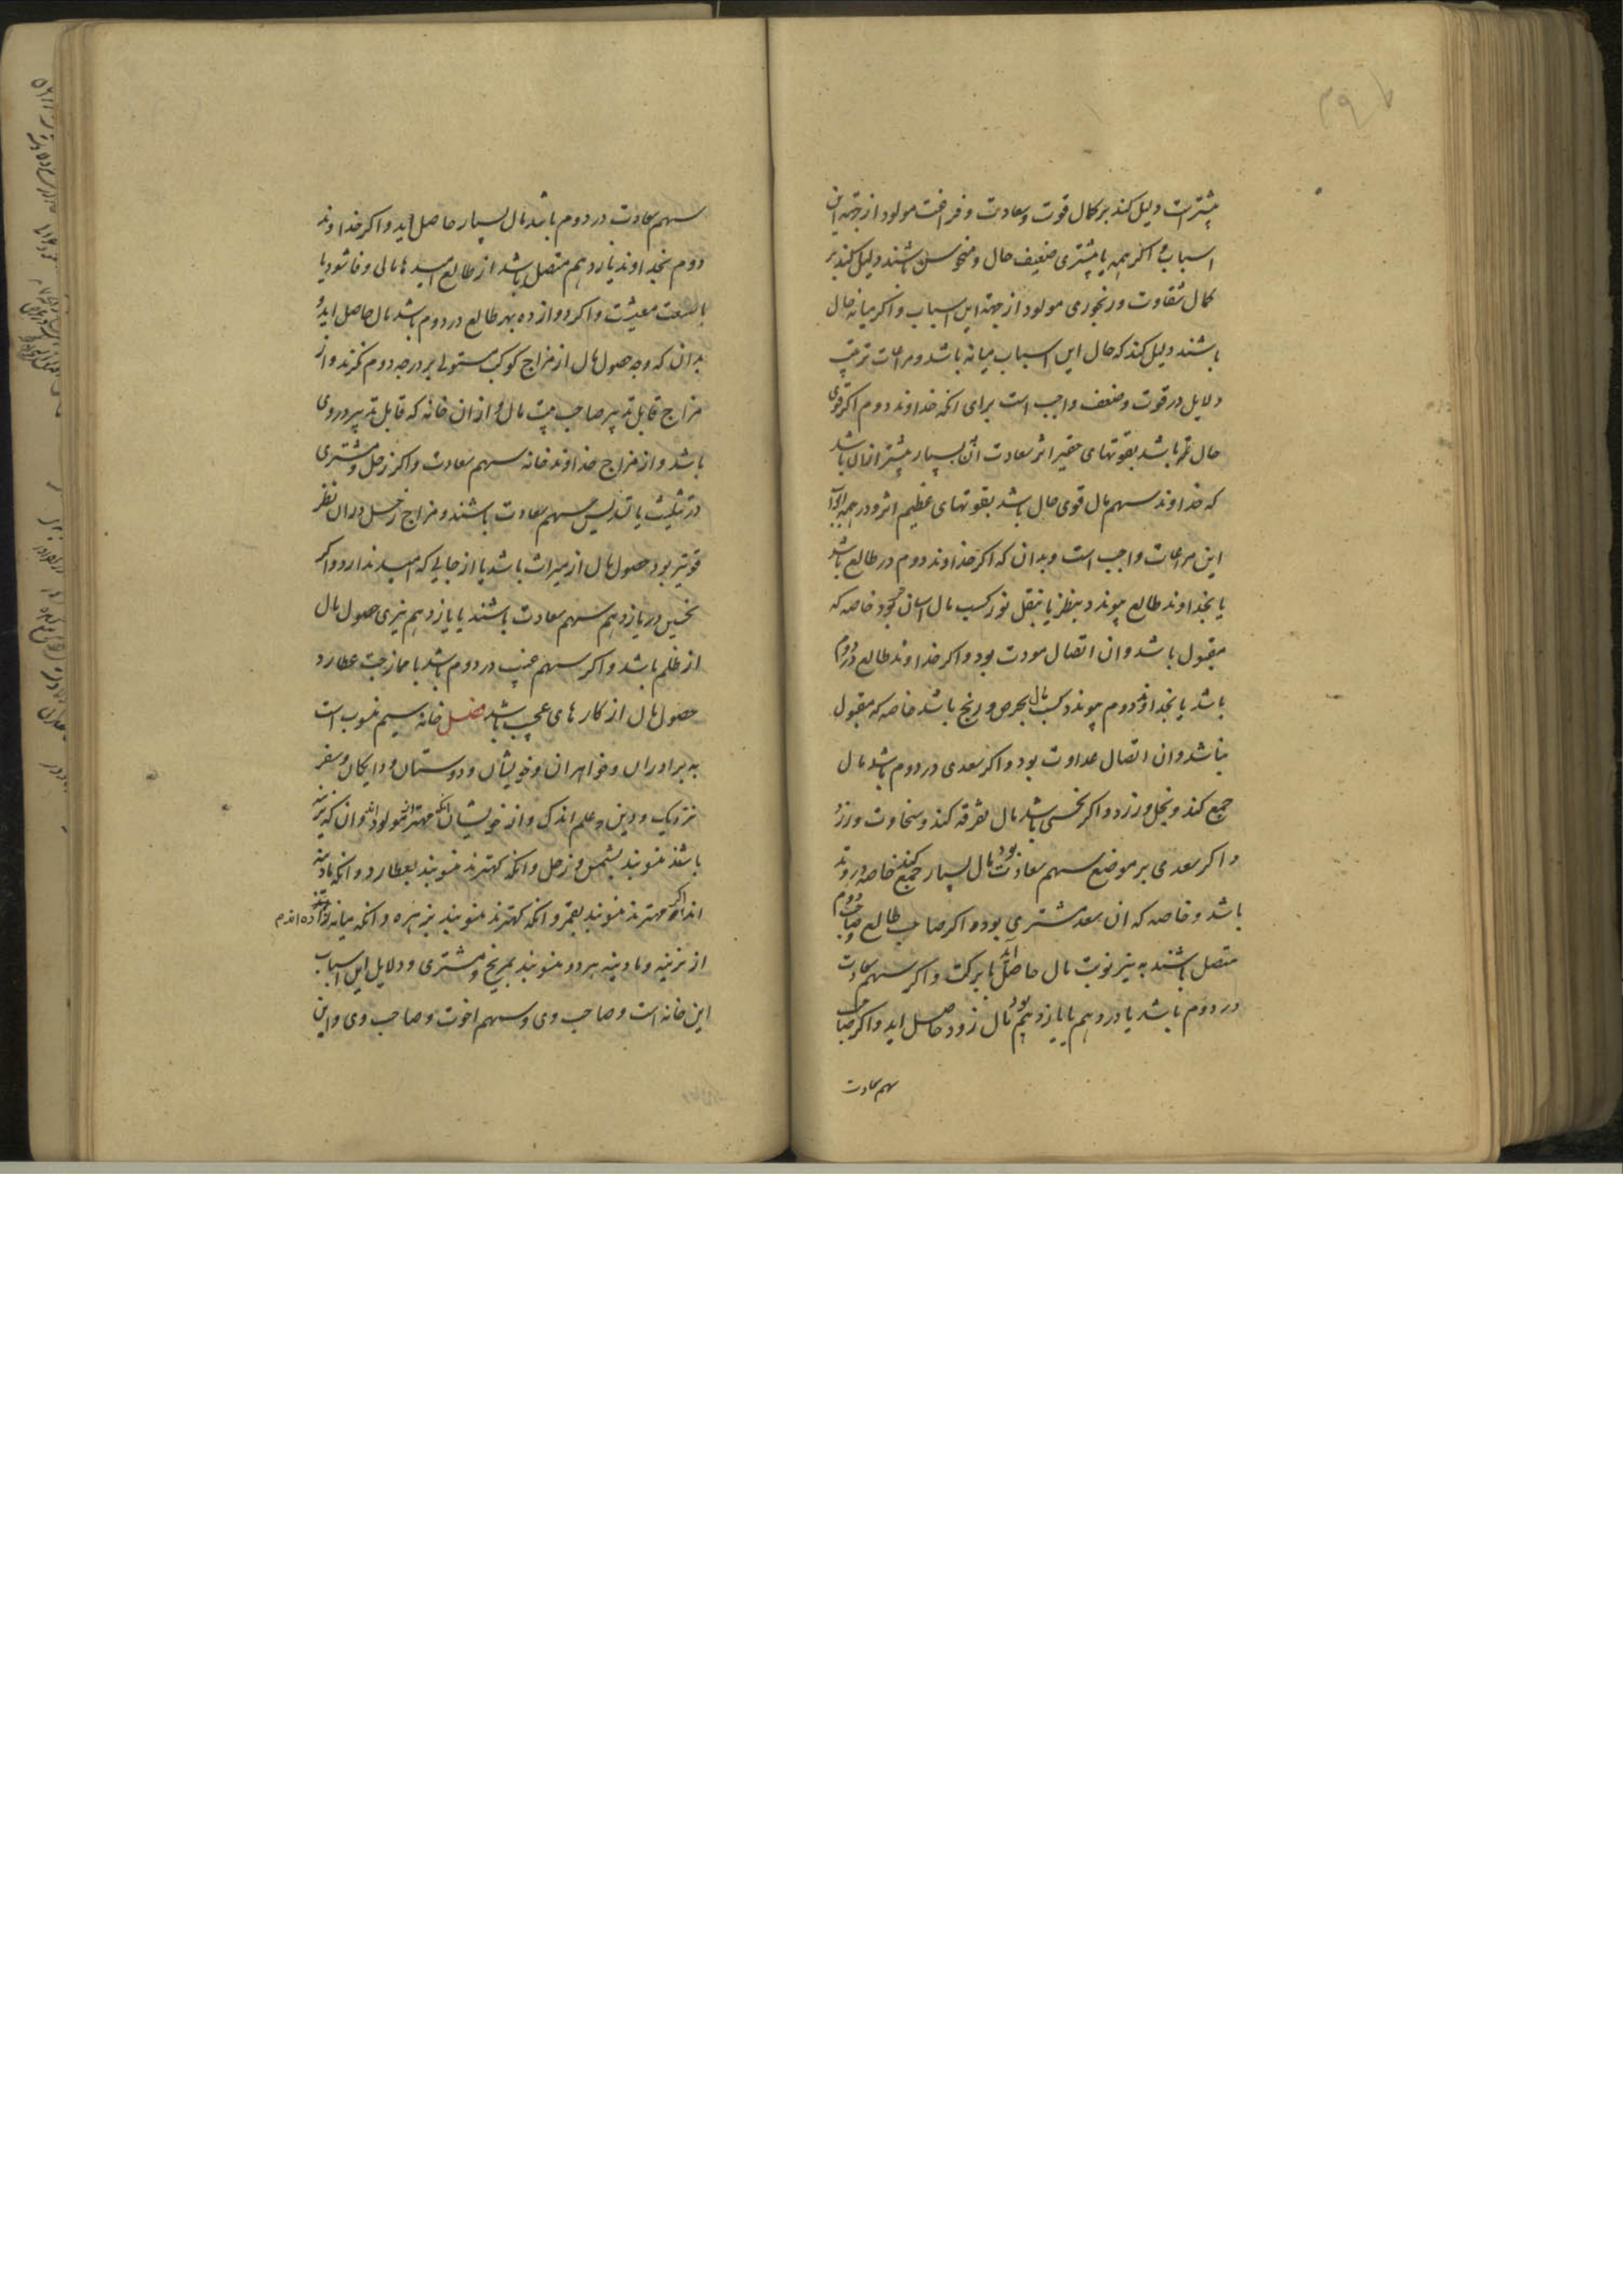 بیشترست دلیل کند بر کمال قوت و سعادت و فراخت مولود از جهة این
اسباب و اکر همه یا بیشتری ضعیف حال و منحوس باشند دلیل کند بر
کمال شقاوت و رنجوری مولود از جهة این اسباب و اکر میانه حال
باشند دلیل کند که حال این اسباب میانه باشد و مراعات ترتیب
دلایل در قوت و ضعف واجب است برای انکه خداوند دوم اکر قوی
حال تر باشد بقوتهای حقیر اثر سعادت آن بسیار بیشتر ازان باشد
که خداوند سهم مال قوی حال باشد بقوتهای عظیم اثر و در همه
این مراعات واجب است و بدان که اکر خداوند دوم در طالع باشد
یا بخداوند طالع پیوندد بنظر یا بنقل نور کسب مال اسان بود خاصه که
مقبول باشد و ان اتصال مودت بود و اکر خداوند طالع در دوم
باشد یا بخداوند دوم پیوندد کسب مال بحرص و رنج باشد خاصه که مقبول
نباشد و ان اتصال عداوت بود و اکر سعدی در دوم باشد مال
جمع کند و بخل ورزد و اکر نحسی باشد مال تفرقه کند و سخاوت ورزد
و اکر سعدی بر موضع سهم سعادت بود مال بسیار جمع کند خاصه در وتد
باشد و خاصه که ان سعد مشتری بود و اکر صاحب طالع و صاحب دوم
متصل باشند به نیر نوبت مال حاصل آید با برکت و اکر سهم سعادت
در دوم باشد یا در دهم یا یازدهم بود مال زود حاصل اید و اکر صاحب
سهم سعادت
سهم سعادت در دوم باشد مال بسیار حاصل اید و اکر خداوند
دوم بخداوند یازدهم متصل باشد از طالع امیدها مالی وفا شود یا
با سعت معیشت و اکر دوازده بهر طالع در دوم باشد مال حاصل اید و
بدان که وجه حصول مال از مزاج کوکب مستولی بر درجه دوم نکرند و از
مزاج قابل تدبیر صاحب بیت مال و ازان خانه که قابل تدبیر در وی
باشد و از مزاج خداوند خانه سهم سعادت و اکر زحل و مشتری
در تثلیث یا تسدیس سهم سعادت باشند و مزاج زحل دران نظر
قویتر بود حصول مال از میراث باشد یا از جایی که امید ندارد و اکر
نحسین در یازدهم سهم سعادت باشند یا یازدهم نیری حصول مال
از ظلم باشد و اکر سهم غیب در دوم باشد با ممازجت عطارد
حصول مال از کارهای عجب باشد فصل خانه سیم منسوب است
به برادران و خواهران و خویشان و دوستان و دایکان و سفر
نزدیک و دین و علم اندک و از خویشان انکه مهتر از مولود اند و ان که نرینه
باشند منسوبند بشمس و زحل و انکه کهترند منسوبند بعطارد و انکه مادینه
اند اکر مهترند منسوبند بقمر و انکه کهترند منسوبند بزهره و انکه میانه
از نرینه و مادینه هر دو منسوبند بمریخ و مشتری و دلایل این اسباب
این خانه است و صاحب وی و سهم اخوت و صاحب وی و این